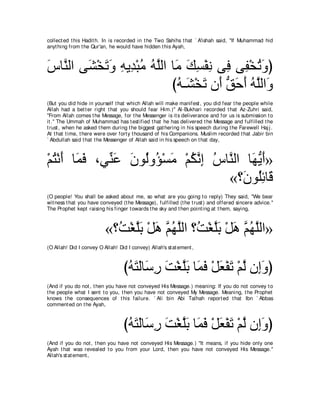 collected this Hadith. In is recorded in the Two Sahihs that `A'ishah said, "If Muhammad hid
anything from the Qur'an, he would have hidden this Ayah,
﴿وَتُخْفِى فِى نَفْسِكَ مَا اللَّهُ مُبْدِيهِ وَتَخْشَى النَّاسَ
وَاللَّهُ أَحَقُّ أَن تَخْشَـهُ﴾
(But you did hide in yourself that which Allah will make manifest, you did fear the people while
Allah had a better right that you should fear Him.)'' Al-Bukhari recorded that Az-Zuhri said,
"From Allah comes the Message, for the Messenger is its deliverance and for us is submission to
it.'' The Ummah of Muhammad has testified that he has delivered the Message and fulfilled the
trust, when he asked them during the biggest gathering in his speech during the Farewell Hajj.
At that time, there were over forty thousand of his Companions. Muslim recorded that Jabir bin
`Abdullah said that the Messenger of Allah said in his speech on that day,
«أَيُّهَا النَّاسُ إِنَّكُمْ مَسْؤُولُونَ عَنِّي، فَمَا أَنْتُمْ
قَائِلُونَ؟»
(O people! You shall be asked about me, so what are you going to reply) They said, "We bear
witness that you have conveyed (the Message), fulfilled (the trust) and offered sincere advice.''
The Prophet kept raising his finger towards the sky and then pointing at them, saying,
«اللَّهُمَّ هَلْ بَلَّغْتُ؟ اللَّهُمَّ هَلْ بَلَّغْتُ؟»
(O Allah! Did I convey O Allah! Did I convey) Allah's statement,
﴿وَإِن لَّمْ تَفْعَلْ فَمَا بَلَّغْتَ رِسَالَتَهُ﴾
(And if you do not, then you have not conveyed His Message.) meaning: If you do not convey to
the people what I sent to you, then you have not conveyed My Message. Meaning, the Prophet
knows the consequences of this failure. `Ali bin Abi Talhah reported that Ibn `Abbas
commented on the Ayah,
﴿وَإِن لَّمْ تَفْعَلْ فَمَا بَلَّغْتَ رِسَالَتَهُ﴾
(And if you do not, then you have not conveyed His Message.) "It means, if you hide only one
Ayah that was revealed to you from your Lord, then you have not conveyed His Message.''
Allah's statement,